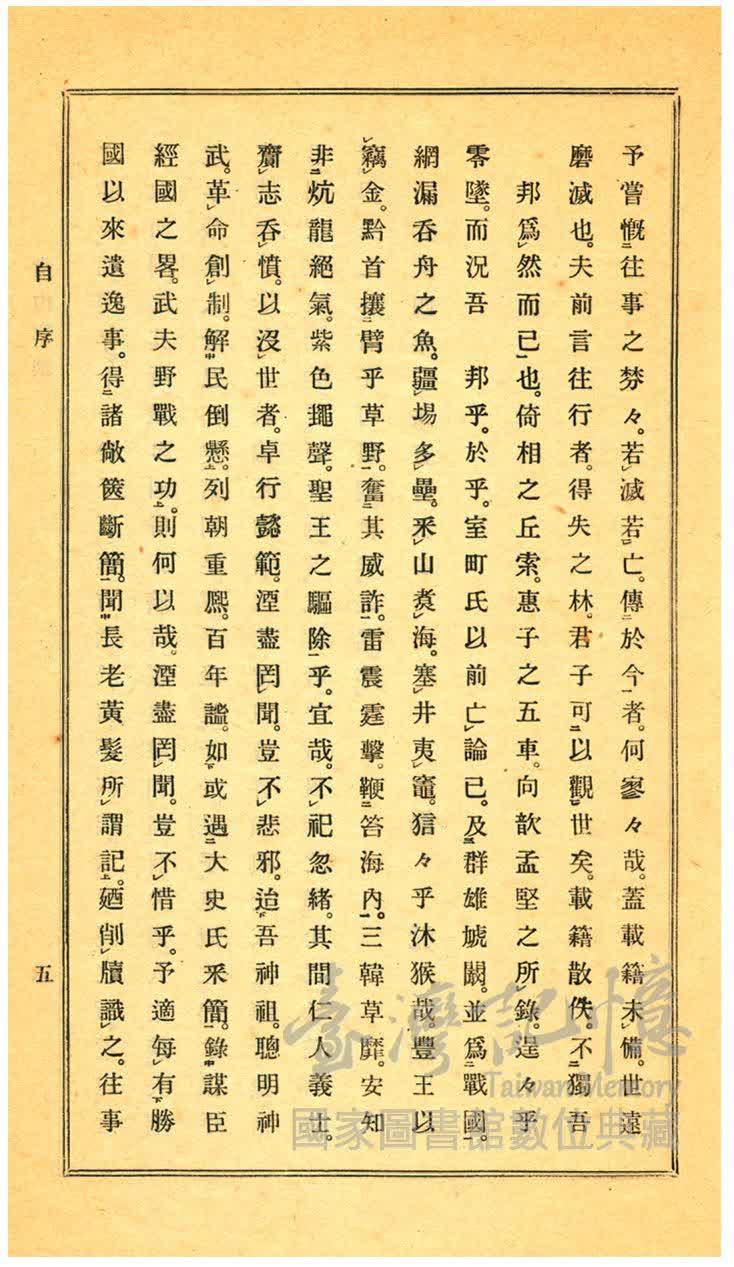 予嘗慨二往事之棼々。若レ滅若レ亡。傳二於今一者。何寥々哉。蓋載籍未レ備。世遠
磨滅也。夫前言往行者。得失之林。君子可二以觀一世矣。載籍散佚。不二獨吾
邦爲レ然而已一也。倚相之丘索。惠子之五車。向歆孟堅之所レ錄。逞々乎
零墜。而況吾　邦乎。於乎。室町氏以前亡レ論已。及三群雄虓闞。並爲二戰國一。
網漏吞舟之魚。疆場多レ壘。釆レ山煑レ海。塞レ井夷レ竈。狺々乎沐猴哉。豐王以
レ竊レ金。黔首攘二臂乎草野一。奮二其威詐一。雷震霆擊。鞭二笞海內一。三韓草靡。安知
非二炕龍絕氣。紫色蠅聲。聖王之驅除一乎。宜哉。不レ祀忽緒。其間仁人義士。
齎レ志吞レ憤。以沒レ世者。卓行懿範。湮盡罔レ聞。豈不レ悲邪。迨下吾神祖。聰明神
武。革レ命創レ制。解中民倒懸上。列朝重凞。百年謐。如下或遇二大史氏釆簡一。錄中謀臣
經國之畧。武夫野戰之功上。則何以哉。湮盡罔レ聞。豈不レ惜乎。予適每レ有下勝
國以來遺逸事。得二諸敝篋斷簡一。聞中長老黃髮所レ謂記上。廼削レ牘識レ之。往事
自序
五
臺灣記憶
Taiwan Memory
國家圖書館數位典藏